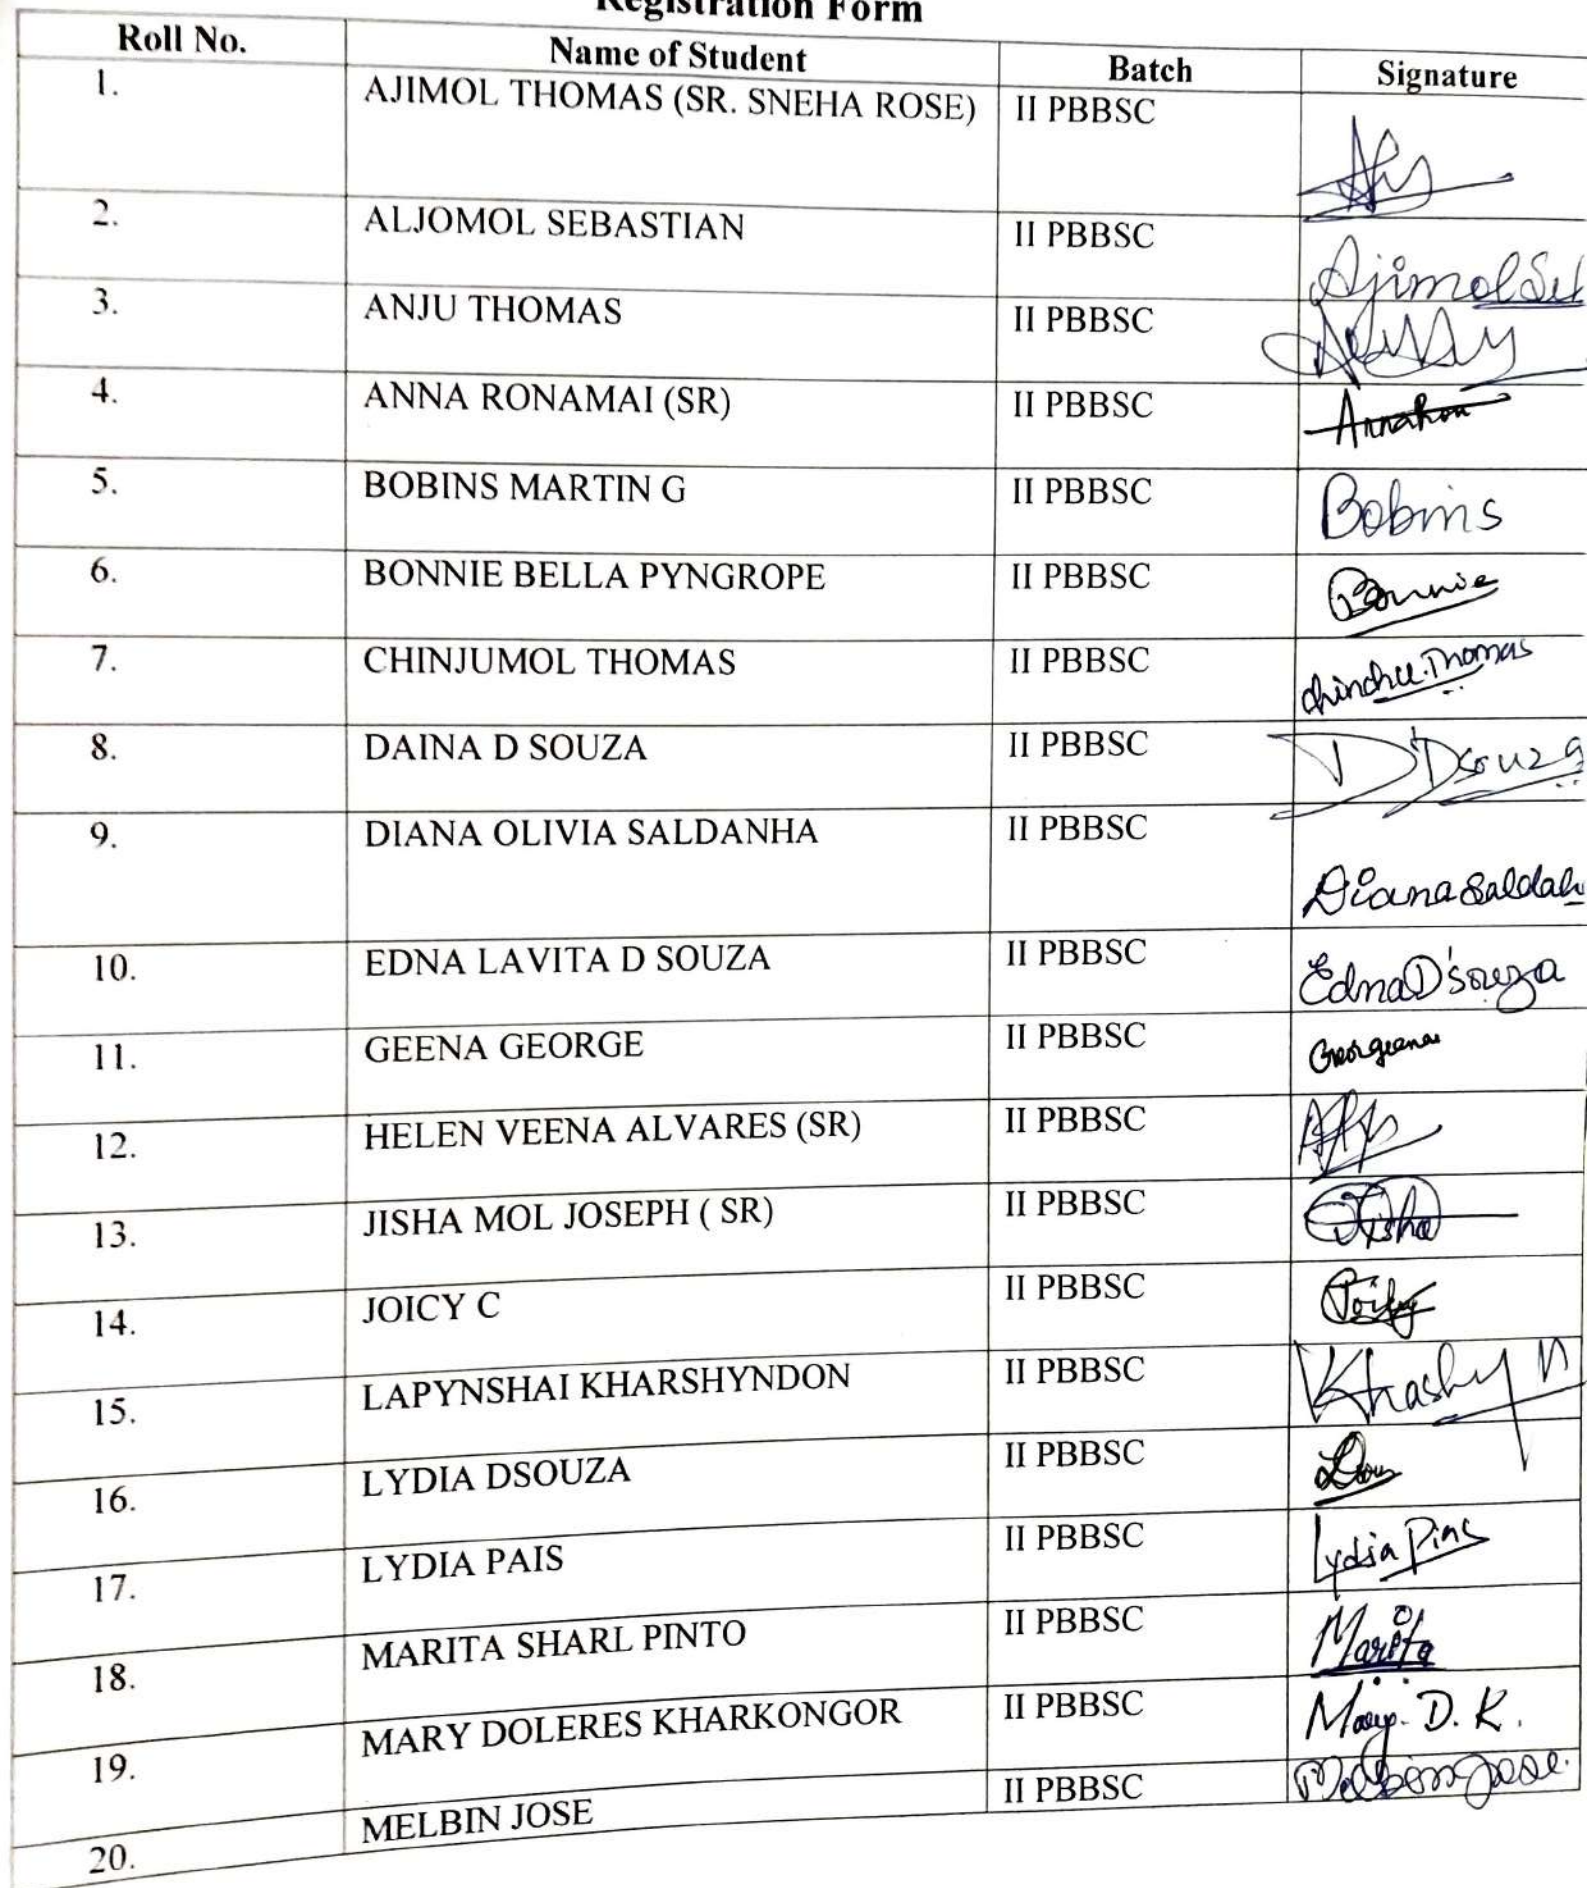 Registration Form
Roll No. Name of Student Batch Signature
1. AJIMOL THOMAS (SR. SNEHA ROSE) II PBBSC
2. ALJOMOL SEBASTIAN II PBBSC Ajimol
3. ANJU THOMAS II PBBSC
4. ANNA RONAMAI (SR) II PBBSC
5. BOBINS MARTIN G II PBBSC Bobins
6. BONNIE BELLA PYNGROPE II PBBSC Bonnie
7. CHINJUMOL THOMAS II PBBSC Chinchu.Thomas
8. DAINA D SOUZA II PBBSC D Dsouza
9. DIANA OLIVIA SALDANHA II PBBSC Diana
10. EDNA LAVITA D SOUZA II PBBSC Edna D'souza
11. GEENA GEORGE II PBBSC
12. HELEN VEENA ALVARES (SR) II PBBSC
13. JISHA MOL JOSEPH ( SR) II PBBSC Jisha
14. JOICY C II PBBSC
15. LAPYNSHAI KHARSHYNDON II PBBSC
16. LYDIA DSOUZA II PBBSC
17. LYDIA PAIS II PBBSC Lydia
18. MARITA SHARL PINTO II PBBSC Marita
19. MARY DOLERES KHARKONGOR II PBBSC Mary. D. K.
20. MELBIN JOSE II PBBSC Melbin Jose.